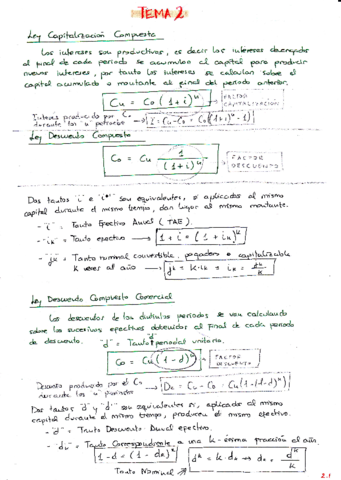 TEMA 2
Ley Capitalización Compuesta
Los intereses son productivos, es decir los intereses devengados
al final de cada periodo se acumulan al capital para producir
nuevos intereses, por tanto los intereses se calculan sobre el
capital acumulado o montante al final del periodo anterior.
Cn = Co (1+i)^n → FACTOR CAPITALIZACIÓN
Interés producido por Co durante los "n" periodos → I = Cn - Co = Co[(1+i)^n - 1]
Ley Descuento Compuesto
Co = Cn 1/(1+i)^n → FACTOR DESCUENTO
Dos tantos i e i^(k) son equivalentes, si aplicados al mismo
capital durante el mismo tiempo, dan lugar al mismo montante.
- "i" = Tanto Efectivo Anual (TAE).
- "ik" = Tanto efectivo → 1+i = (1+ik)^k
- "jk" = Tanto nominal convertible, pagadero o capitalizable
K veces al año → jk = k·ik → ik = jk/k
Ley Descuento Compuesto Comercial
Los descuentos de los distintos periodos se van calculando
sobre los sucesivos efectivos obtenidos al final de cada periodo
de descuento. "d" = Tanto d periodal unitario.
Co = Cn (1-d)^n → FACTOR DESCUENTO
Descuento producido por el Co durante los "n" periodos → Dn = Cn - Co = Cn(1-(1-d)^n)
Dos tantos "d" y "d" son equivalentes si, aplicados al mismo
capital durante el mismo tiempo, producen el mismo efectivo.
- "d" = Tanto Descuento Anual efectivo.
- "dk" = Tanto Correspondiente a una k-ésima fracción al año.
1-d = (1-dk)^k d^k = k·dk → dk = d^k/k
Tanto Nominal
2.1